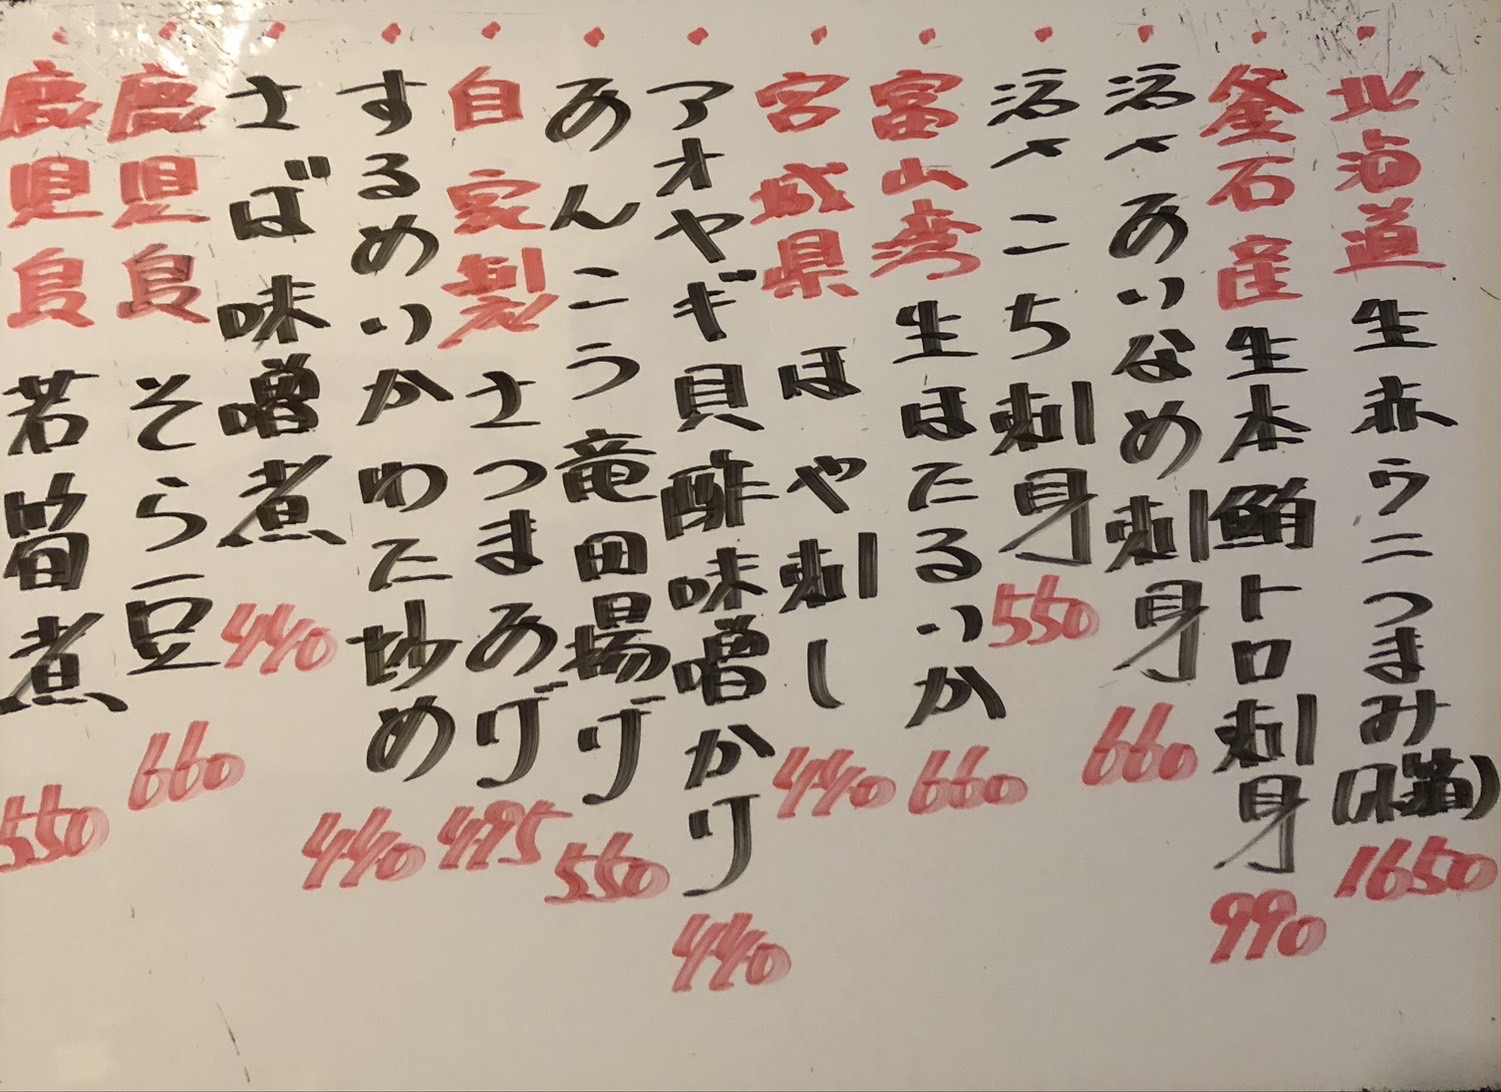 ・北海道生赤ウニつまみ(木箱)1650
・釜石産生本鮪トロ刺身990
・活〆あいなめ刺身660
・活〆こち刺身550
・富山湾生ほたるいか660
・宮城県ほや刺し440
・アオヤギ貝酢味噌かけ440
・あんこう竜田揚げ550
・自家製さつまあげ495
・するめいかわた炒め440
・さば味噌煮440
・鹿児島そら豆660
・鹿児島若筍煮550